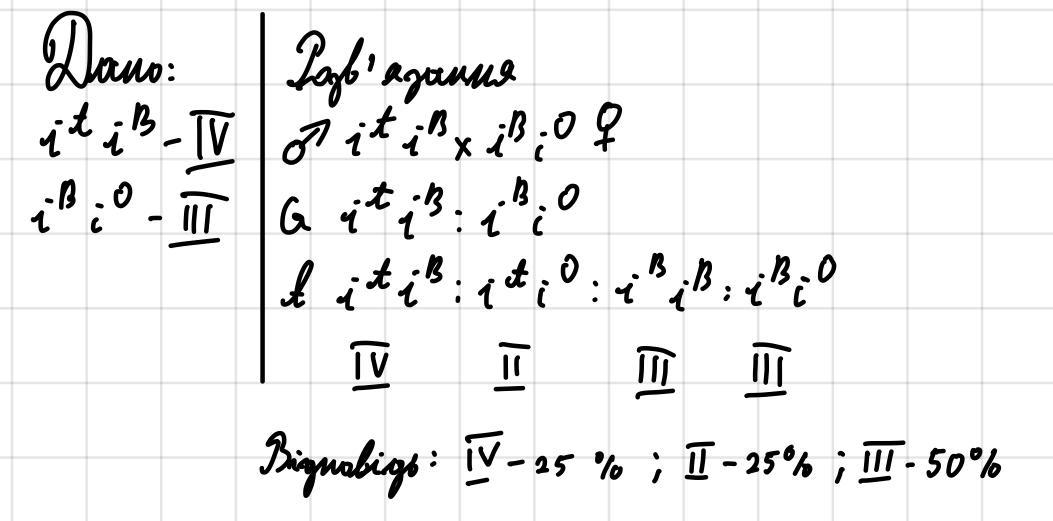 Дано:
i^A i^B - IV
i^B i^0 - III
Розв'язання
♂ i^A i^B x i^B i^0 ♀
G i^A i^B : i^B i^0
F i^A i^B : i^A i^0 : i^B i^B : i^B i^0
IV II III III
Відповідь: IV - 25 % ; II - 25% ; III - 50%